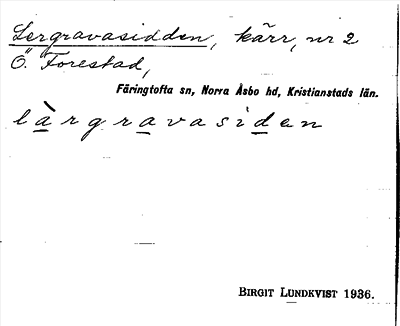 Lergravasidden, kärr, nr 2
Ö. Forestad,
Färingtofta sn, Norra Åsbo hd, Kristianstads län.
làrgravasiden
BIRGIT LUNDKVIST 1936.